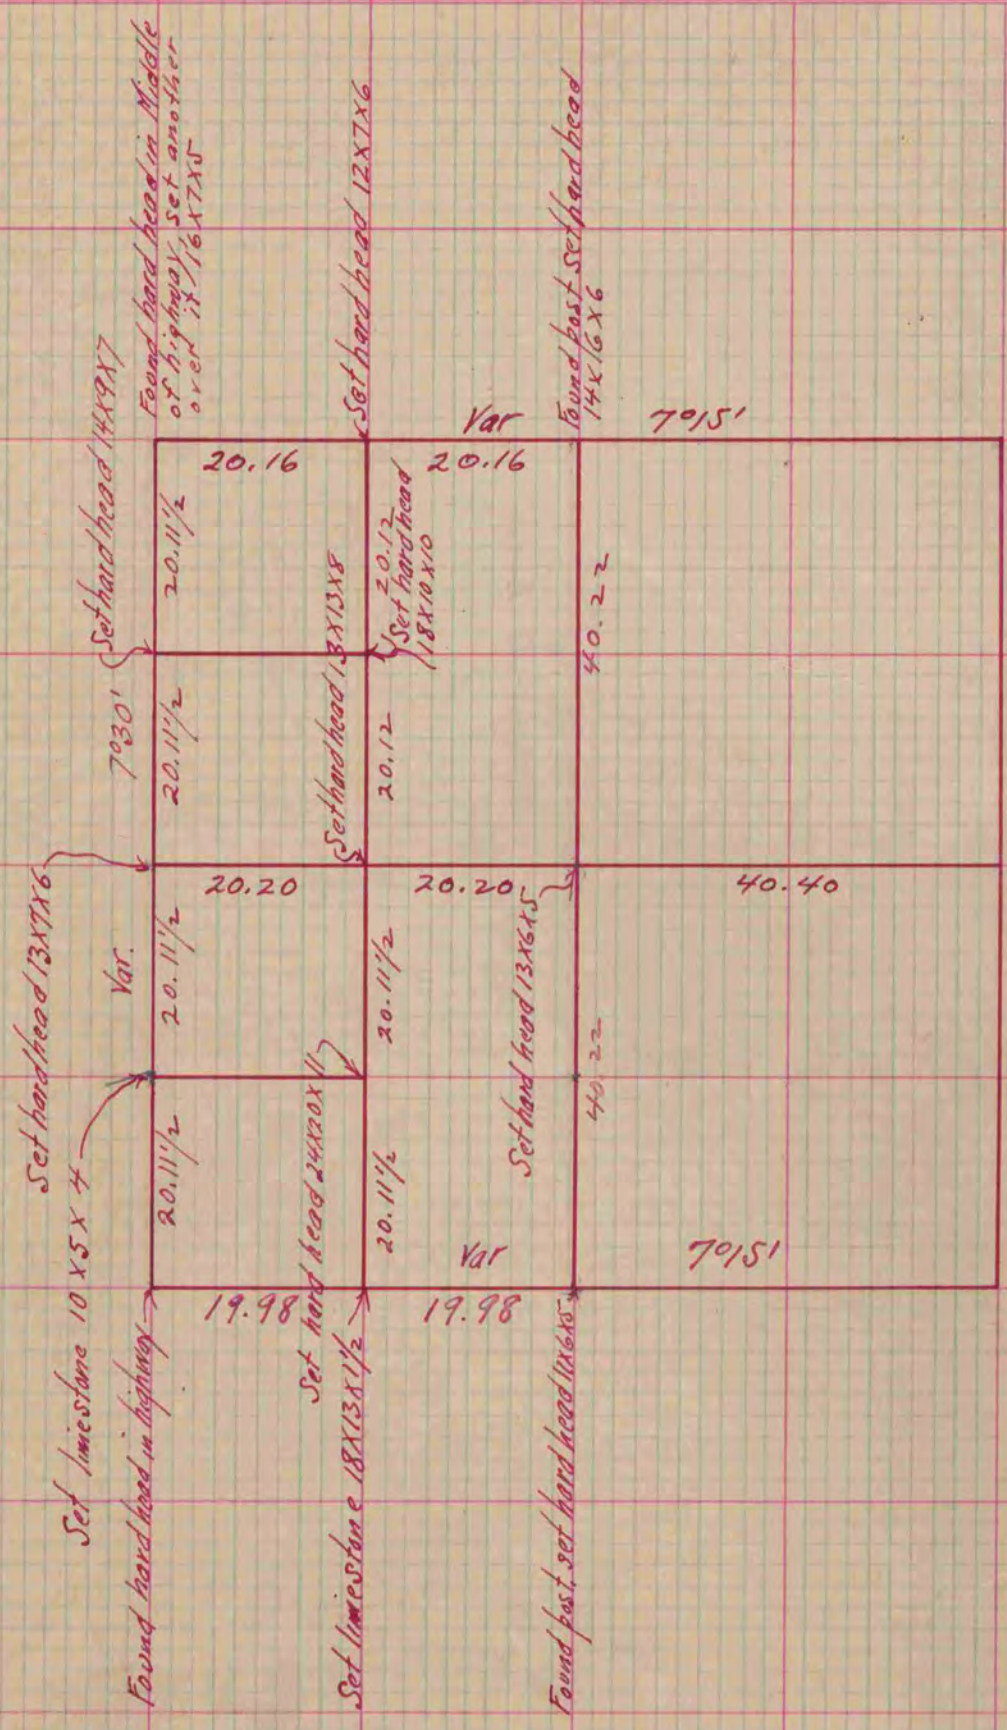 Found hard head in Middle
of highway, set another
over it 16X7X5
Set hard head 12X7X6
Found post set hard head
14X16X6
Set hard head 14X9X7
Var
7°15'
20.16
20.16
20.11½
20.12
Set hard head
18X10X10
40.22
7°30'
20.11½
Set hard head 13X13X8
20.12
Set hard head 13X7X6
20.20
20.20
40.40
Var.
20.11½
20.11½
Set hard head 13X6X5
40.22
Set limestone 10X5X4
20.11½
Set hard head 24X20X11
20.11½
Var
7°15'
19.98
19.98
Found hard head in highway
Set limestone 18X13X1½
Found post, set hard head 11X6X5